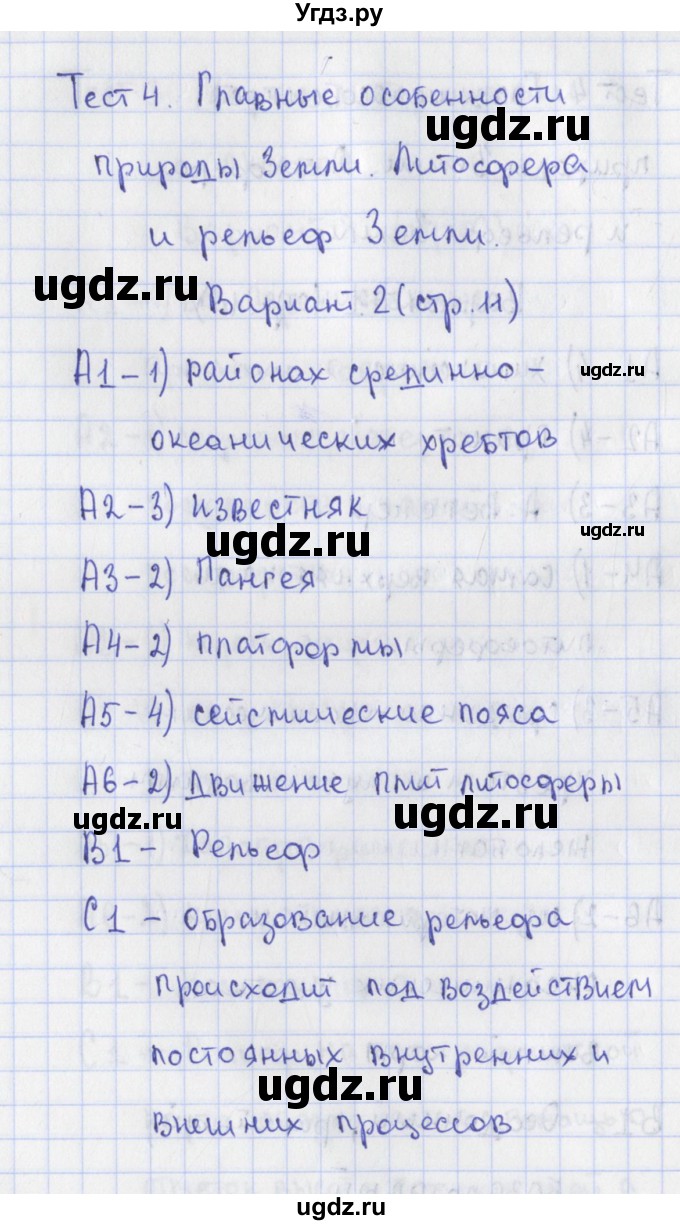 Угдз.ру
Тест 4. Главные особенности
ugdz.ru
природы Земли. Литосфера
и рельеф Земли.
ugdz.ru
Вариант 2 (стр. 11)
А1 - 1) районах срединно -
ugdz.ru
океанических хребтов
А2 - 3) известняк
ugdz.ru
ugdz.ru
А3 - 2) Пангея
А4 - 2) платформы
А5 - 4) сейсмические пояса
А6 - 2) движение плит литосферы
ugdz.ru
ugdz.ru
В1 - Рельеф
С1 - образование рельефа
происходит под воздействием
постоянных внутренних и
ugdz.ru
внешних процессов
ugdz.ru